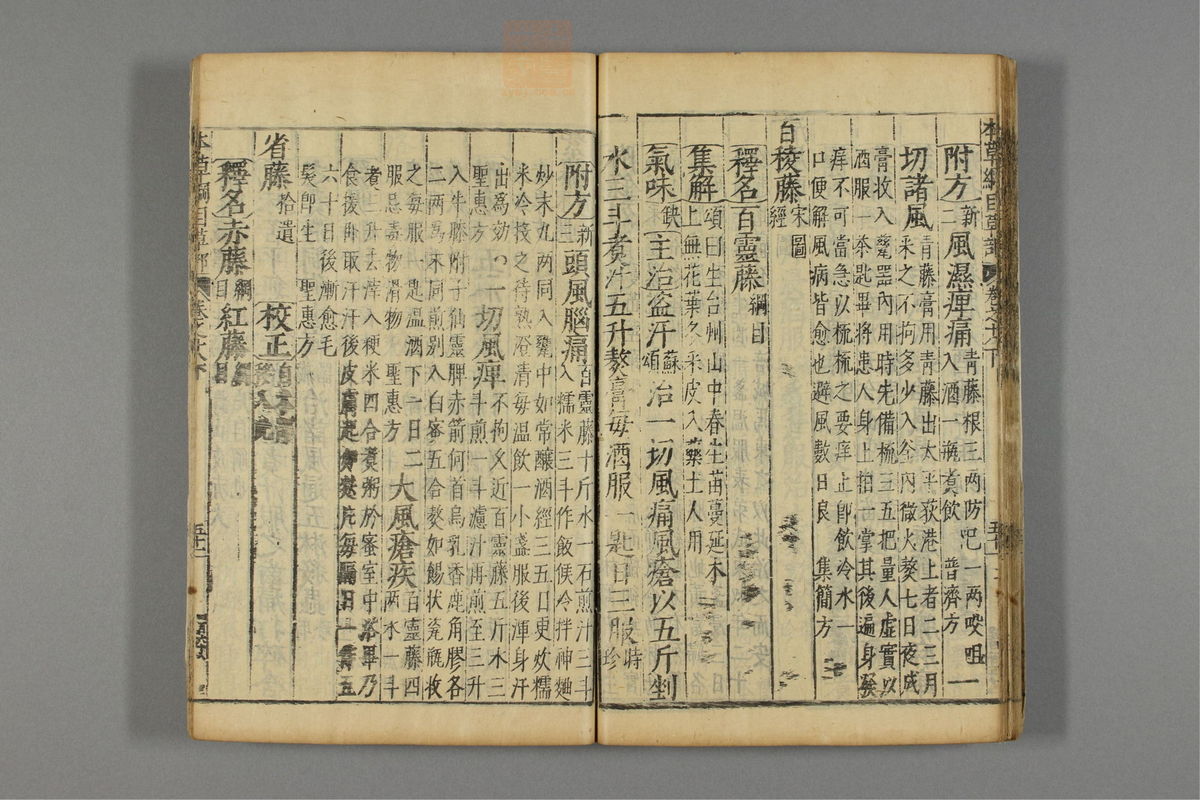 附方新二風濕痺痛青藤根三兩防己一兩㕮咀入酒一瓶煮飲普濟方一
切諸風青藤膏用青藤出太平荻港上者二三月采之不拘多少入釜內微火熬七日夜成
膏收入甆器內用時先備梳三五把量人虛實以
酒服一茶匙畢將患人身上拍一掌其後遍身發
痒不可當急以梳梳之要痒止即飲冷水一
口便解風病皆愈也避風數日良 集簡方
百稜藤宋圖經
釋名百靈藤綱目
集解頌曰生台州山中春生苗蔓延木上無花葉冬采皮入藥土人用
氣味缺主治盜汗蘇頌治一切風痛風瘡以五斤剉
水三斗煮汁五升熬膏每酒服一匙日三服時珍
附方新三頭風腦痛百靈藤十斤水一石煎汁三斗入糯米三斗作飯候冷拌神麴
炒末九兩同入甕中如常釀酒經三五日更炊糯
米冷投之待熟澄清每温飲一小盞服後渾身汗
出為効○一切風痺不拘久近百靈藤五斤水三
聖惠方 斗煎一斗濾汁再煎至三升
入牛膝附子仙靈脾赤箭何首烏乳香鹿角膠各
二兩為末同煎别入白蜜五合熬如餳状瓷瓶收
之每服一匙温酒下一日二 大風瘡疾百靈藤四兩水一斗
服忌毒物滑物 聖惠方
煮三升去滓入粳米四合煮粥於蜜室中浴畢乃
食後再取汗汗後皮膚起每隔日一五
六十日後漸愈毛
髮即生 聖惠方
省藤拾遺 校正
釋名赤藤綱目紅藤
本草綱目草部 卷之十八下 五十一